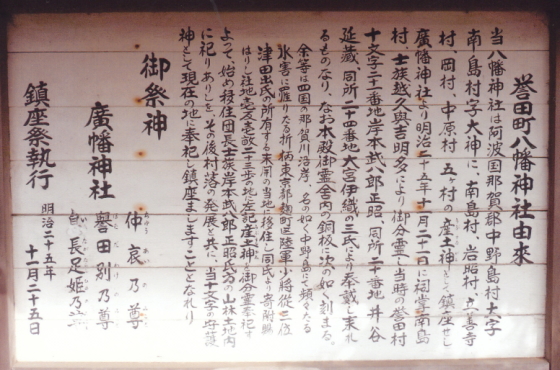 誉田町八幡神社由來
当八幡神社は阿波国那賀郡中野島村大字
南島村字大神に、南島村、岩脇村、古善寺
村、岡村、中原村、五ヶ村の産土神として鎮座せし
廣幡神社より明治二十五年十月二十一日に祠掌南島
村、士族越久與吉明多により御分霊し当時の誉田村
十文字二十一番地岸本武八郎正昭、同所二十番地 井谷
延藏、同所二十四番地大宮伊織の三氏により奉載し來れ
るものなり、なお本殿御霊舎内の銅板に次の如く刻まる。
余等は四国の那賀川沿岸、名の如く中野島にて頻々たる
水害に罹りたる折柄東京都麹町区陸軍少将從三位
津田出氏の所有する未開の当地に移住し同氏より寄附賜
はりし社地壱反壱畝二十三歩の地に右記産土神を御分霊奉祀す
よって、始め移住団長士族岸本武八郎正昭氏宅の山林土地内
に祀りありしを、その後村落の発展と共に、当十文字の守護
神として現在の地に奉祀し鎮座まします こととなれり
御祭神
仲哀乃尊
廣幡神社 譽田別乃尊
長足姫乃尊
鎮座祭執行 明治二十五年
十一月二十五日